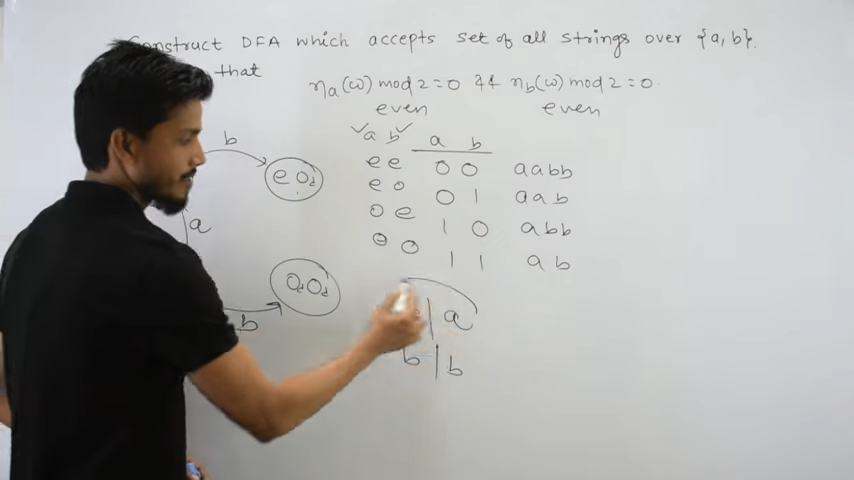 Construct DFA which accepts set of all strings over {a, b}.
that
ηa(ω) mod 2 = 0 && ηb(ω) mod 2 = 0.
even even
✓a b✓ a b
e e 0 0 aabb
e o 0 1 aab
o e 1 0 abb
o o 1 1 ab
b
e Od
a
Od Od
b
| a
b | b